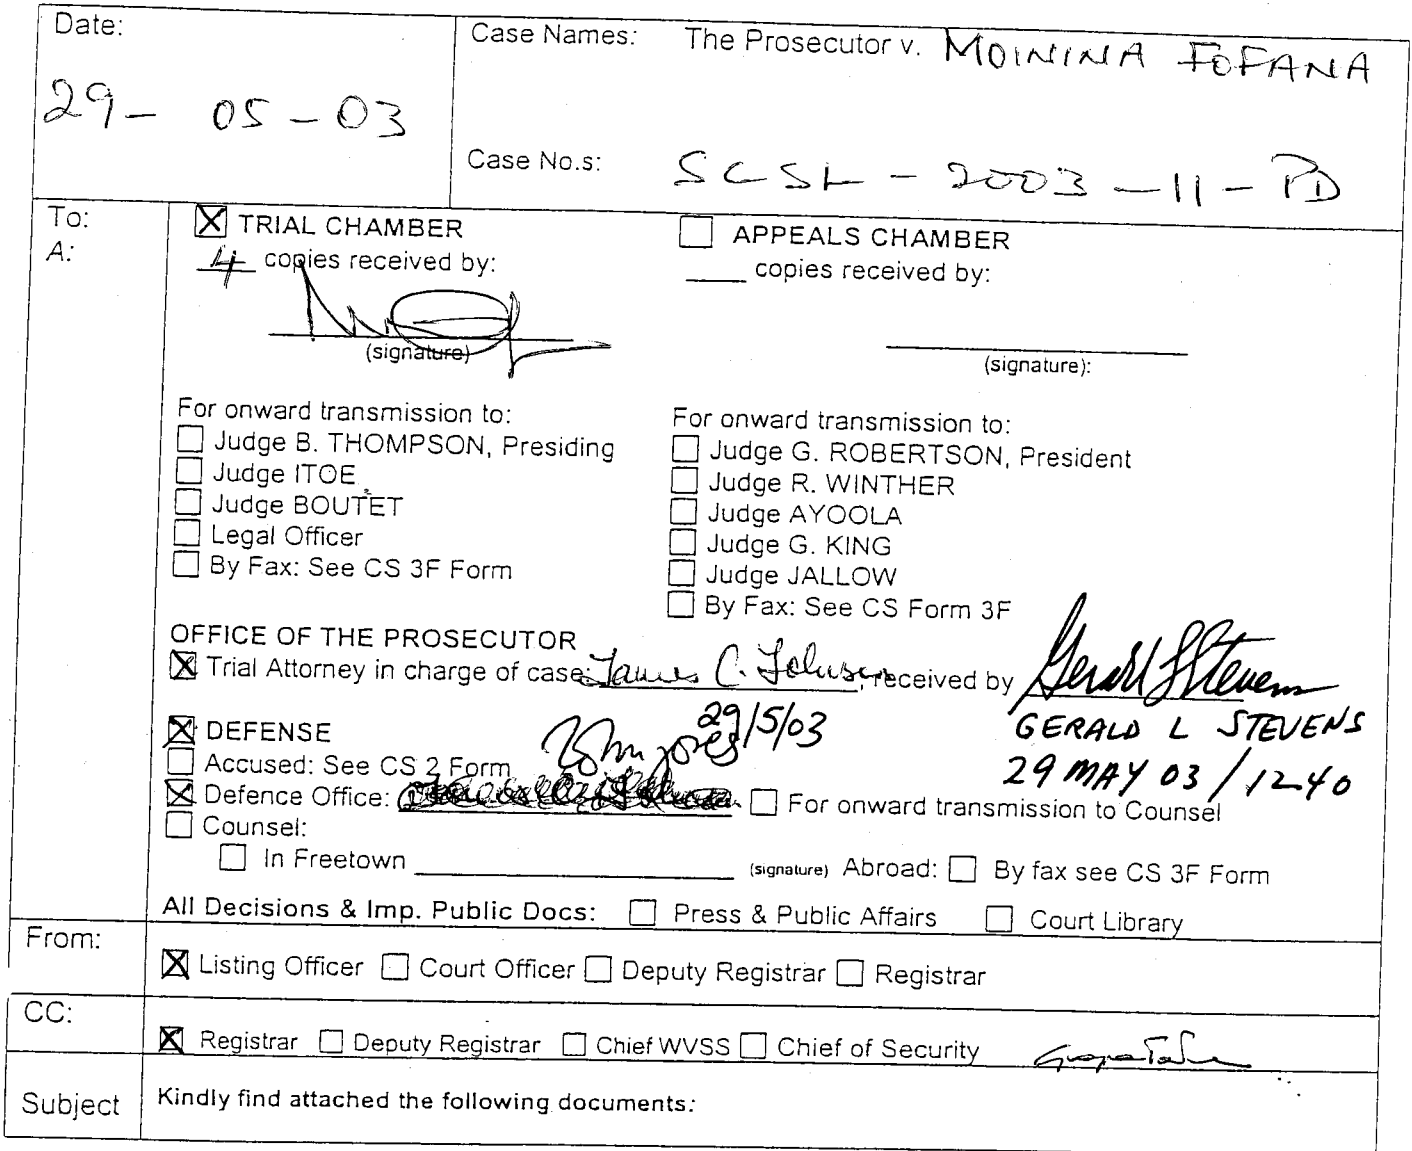 Date:
29- 05-03
Case Names: The Prosecutor v. MOININA FOFANA
Case No.s: SCSL-2003-11-PD
To:
A:
TRIAL CHAMBER
4 copies received by:
(signature)
APPEALS CHAMBER
____ copies received by:
(signature):
For onward transmission to:
Judge B. THOMPSON, Presiding
Judge ITOE
Judge BOUTET
Legal Officer
By Fax: See CS 3F Form
For onward transmission to:
Judge G. ROBERTSON, President
Judge R. WINTHER
Judge AYOOLA
Judge G. KING
Judge JALLOW
By Fax: See CS Form 3F
OFFICE OF THE PROSECUTOR
Trial Attorney in charge of case: James C. Johnson, received by Gerald L Stevens
GERALD L STEVENS
29 MAY 03 / 1240
DEFENSE
John Jones 29/5/03
Accused: See CS 2 Form
Defence Office: For onward transmission to Counsel
Counsel:
In Freetown (signature) Abroad: By fax see CS 3F Form
All Decisions & Imp. Public Docs: Press & Public Affairs Court Library
From:
Listing Officer Court Officer Deputy Registrar Registrar
CC:
Registrar Deputy Registrar Chief WVSS Chief of Security
Subject
Kindly find attached the following documents: